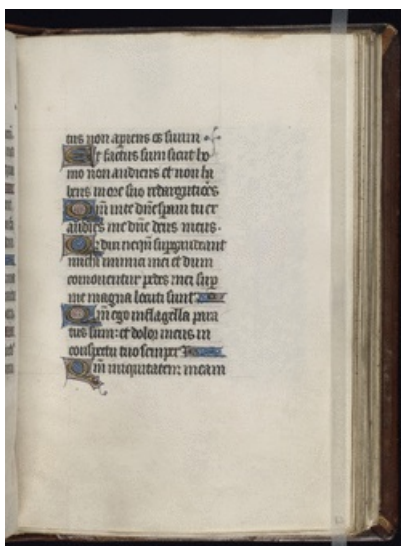 tus non aperiens os suum
Et factus sum sicut ho
mo non audiens et non ha
bens in ore suo redargutiōes
Qm̄ in te dn̄e speraui tu ex
audies me dn̄e deus meus.
Quia dixi nequn̄ supgaudeant
michi inimici mei et dum
comouentur pedes mei sup
me magna locuti sunt
Qm̄ ego in flagella para
tus sum: et dolor meus in
conspectu tuo semper
Qm̄ iniquitatem meam